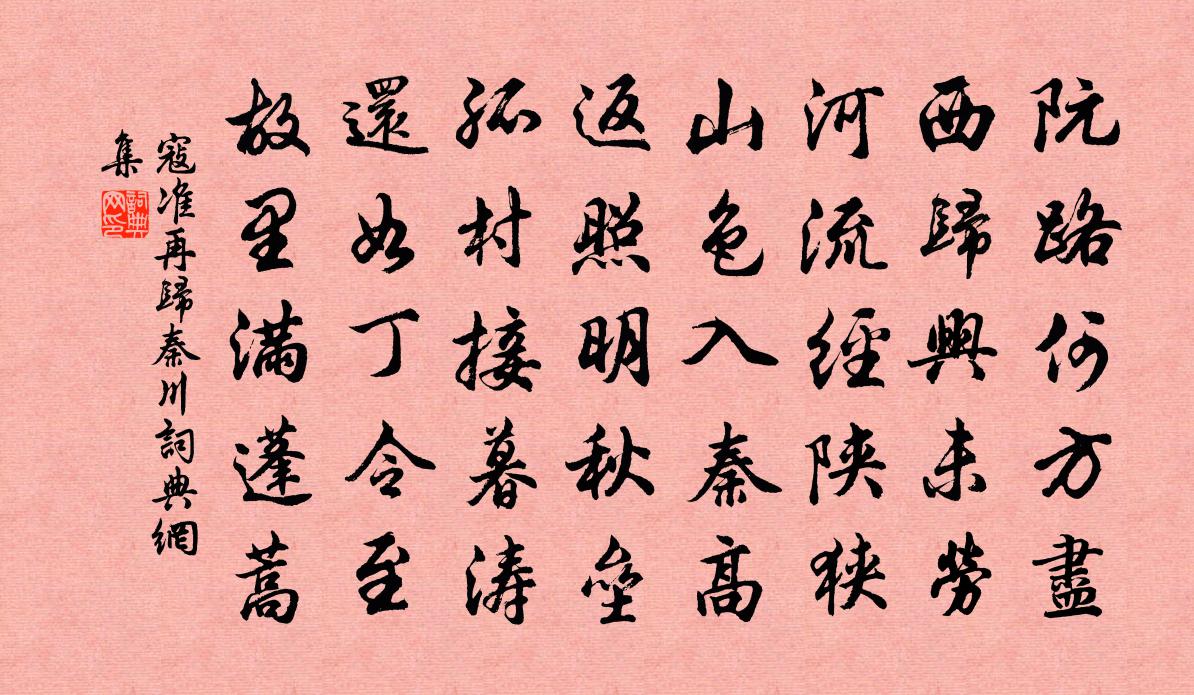 阮路何方盡
西歸興未勞
河流經陕狹
山色入秦高
返照明秋壘
孤村接暮涛
還如丁令至
故里滿蓬蒿
寇准再歸秦川詞典網
集
詞典
网印